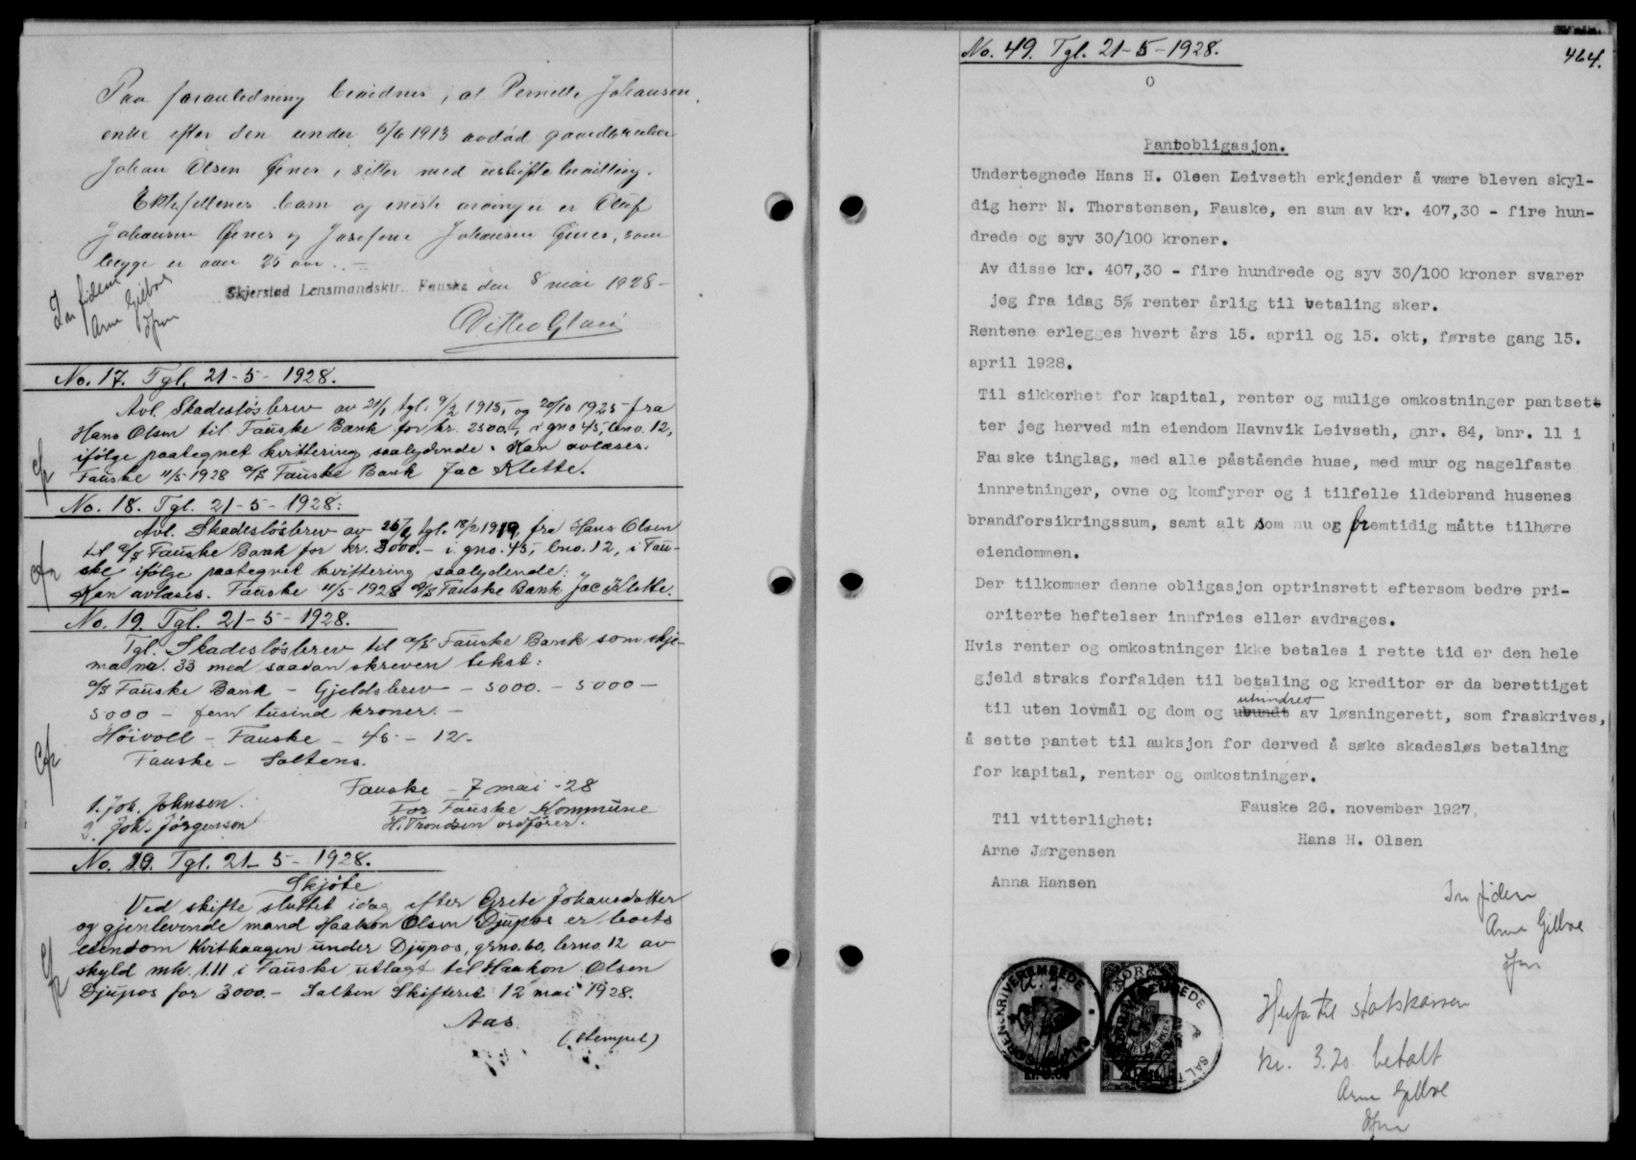 Paa foranledning bevidnes, at Pernelle Johansen
enke efter den under 5/6 1913 avdød gaardbruker
Johan Olsen Øines, sitter med uskiftebevilling.
Ektefellenes barn og eneste arvinger er Oluf
Johansen Øines og Josefine Johansen Øines, som
begge er over 25 aar. -
Skjerstad Lensmandsktr. Fauske den 8 mai 1928 -
In fidem
Arne Gilboe
No. 17. Tgl. 21-5-1928.
Avl. Skadesløsbrev av 21/1 tgl. 9/2 1915, og 20/10 1925 fra
Hans Olsen til Fauske Bank for kr. 2500,- i gno 45, bno. 12,
ifølge paategnet kvittering saalydende. Kan avlæses.
Fauske 11/5 1928 a/s Fauske Bank Jac Klette.
No. 18. Tgl. 21-5-1928.
Avl. Skadesløsbrev av tgl. 18/2 1919 fra Hans Olsen
til a/s Fauske Bank for kr. 3000.- i gno. 45, bno. 12, i Fau-
ske ifølge paategnet kvittering saalydende:
Kan avlæses. Fauske 11/5 1928 a/s Fauske Bank Jac Klette.
No. 19. Tgl. 21-5-1928.
Tgl. Skadesløsbrev til a/s Fauske Bank som skje-
ma no. 33 med saadan skreven tekst:
a/s Fauske Bank - Gjeldsbrev - 5000. - 5000 -
5000 - fem tusind kroner. -
Høivoll - Fauske - 45 - 12.
Fauske - Saltens.
Fauske - 7 mai - 28
1. Joh. Johnsen. For Fauske Kommune
2. Joh. Jörgenson H. Trondsen ordfører.
No. 20. Tgl. 21-5-1928.
Skjøte
Ved skifte sluttet idag efter Grete Johansdatter
og gjenlevende mand Haakon Olsen Djupos er boets
eiendom Kvithaagen under Djupos, grno. 60. brno. 12 av
skyld mk. 1.11 i Fauske utlagt til Haakon Olsen
Djupos for 3000.- Salten Skifteret 12 mai 1928.
Aas.
(stempel)
No. 49. Tgl. 21-5-1928.
464.
Pantobligasjon.
Undertegnede Hans H. Olsen Leivseth erkjender å være bleven skyl-
dig herr N. Thorstensen, Fauske, en sum av kr. 407,30 - fire hun-
drede og syv 30/100 kroner.
Av disse kr. 407,30 - fire hundrede og syv 30/100 kroner svarer
jeg fra idag 5% renter årlig til betaling sker.
Rentene erlegges hvert års 15. april og 15. okt, første gang 15.
april 1928.
Til sikkerhet for kapital, renter og mulige omkostninger pantsett
ter jeg herved min eiendom Havnvik Leivseth, gnr. 84, bnr. 11 i
Fauske tinglag, med alle påstående huse, med mur og nagelfaste
innretninger, ovne og komfyrer og i tilfelle ildebrand husenes
brandforsikringssum, samt alt som nu og fremtidig måtte tilhøre
eiendommen.
Der tilkommer denne obligasjon optrinsrett eftersom bedre pri-
oriterte heftelser innfries eller avdrages.
Hvis renter og omkostninger ikke betales i rette tid er den hele
gjeld straks forfalden til betaling og kreditor er da berettiget
uhindret
til uten lovmål og dom og ubundt av løsningerett, som fraskrives,
å sette pantet til auksjon for derved å søke skadesløs betaling
for kapital, renter og omkostninger.
Fauske 26. november 1927.
Til vitterlighet:
Hans H. Olsen
Arne Jørgensen
Anna Hansen
In fidem
Arne Gilboe
Herfor til statskassen
kr. 3.20 betalt
Arne Gilboe